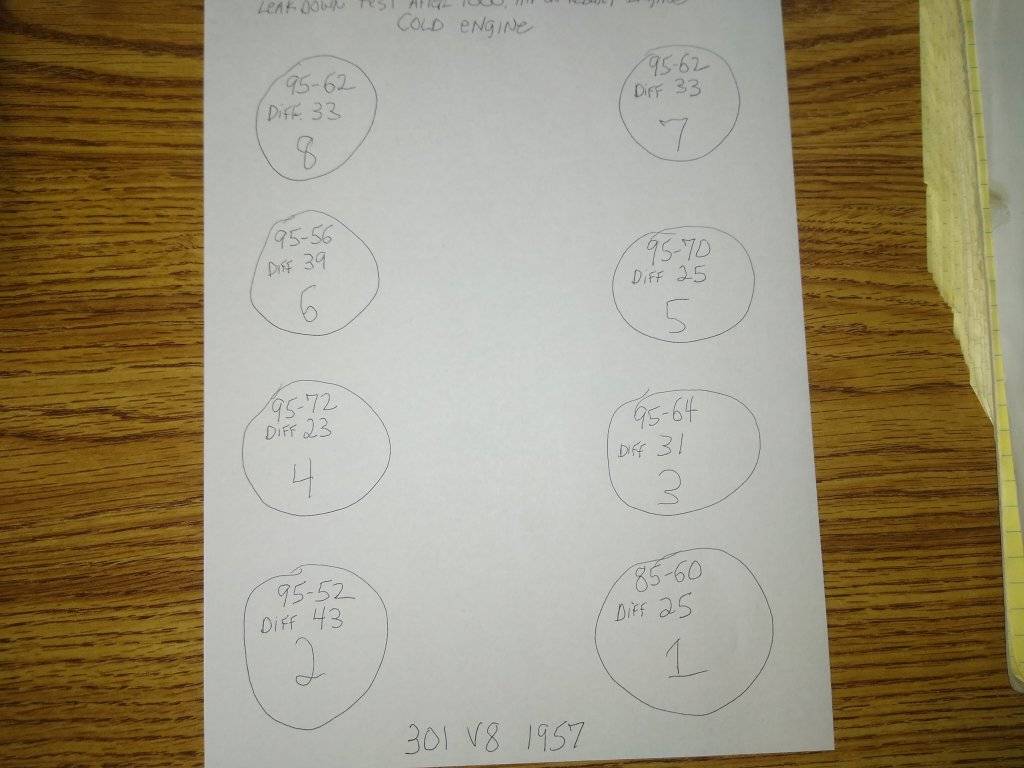 LEAKDOWN TEST AFTER 1000 ENGINE
COLD ENGINE
95-62
DIFF 33
8
95-62
DIFF 33
7
95-56
DIFF 39
6
95-70
DIFF 25
5
95-72
DIFF 23
4
95-64
DIFF 31
3
95-52
DIFF 43
2
85-60
DIFF 25
1
301 V8 1957